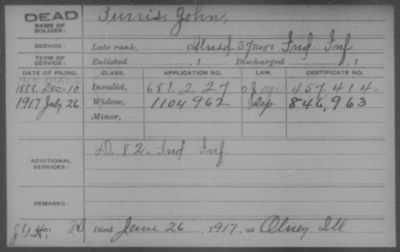 DEAD
NAME OF SOLDIER: John,
SERVICE: Late rank, 37 Regt Ind Inf
TERM OF SERVICE: Enlisted , 1 Discharged , 1
DATE OF FILING. CLASS. APPLICATION NO. LAW. CERTIFICATE NO.
1888. Dec. 10 Invalid, 681.227 457.414
1917 July 26 Widow, 1104962 846,963
Minor,
ADDITIONAL SERVICES: D 82 Ind Inf.
REMARKS:
Died June 26, 1917, at Olney Ill